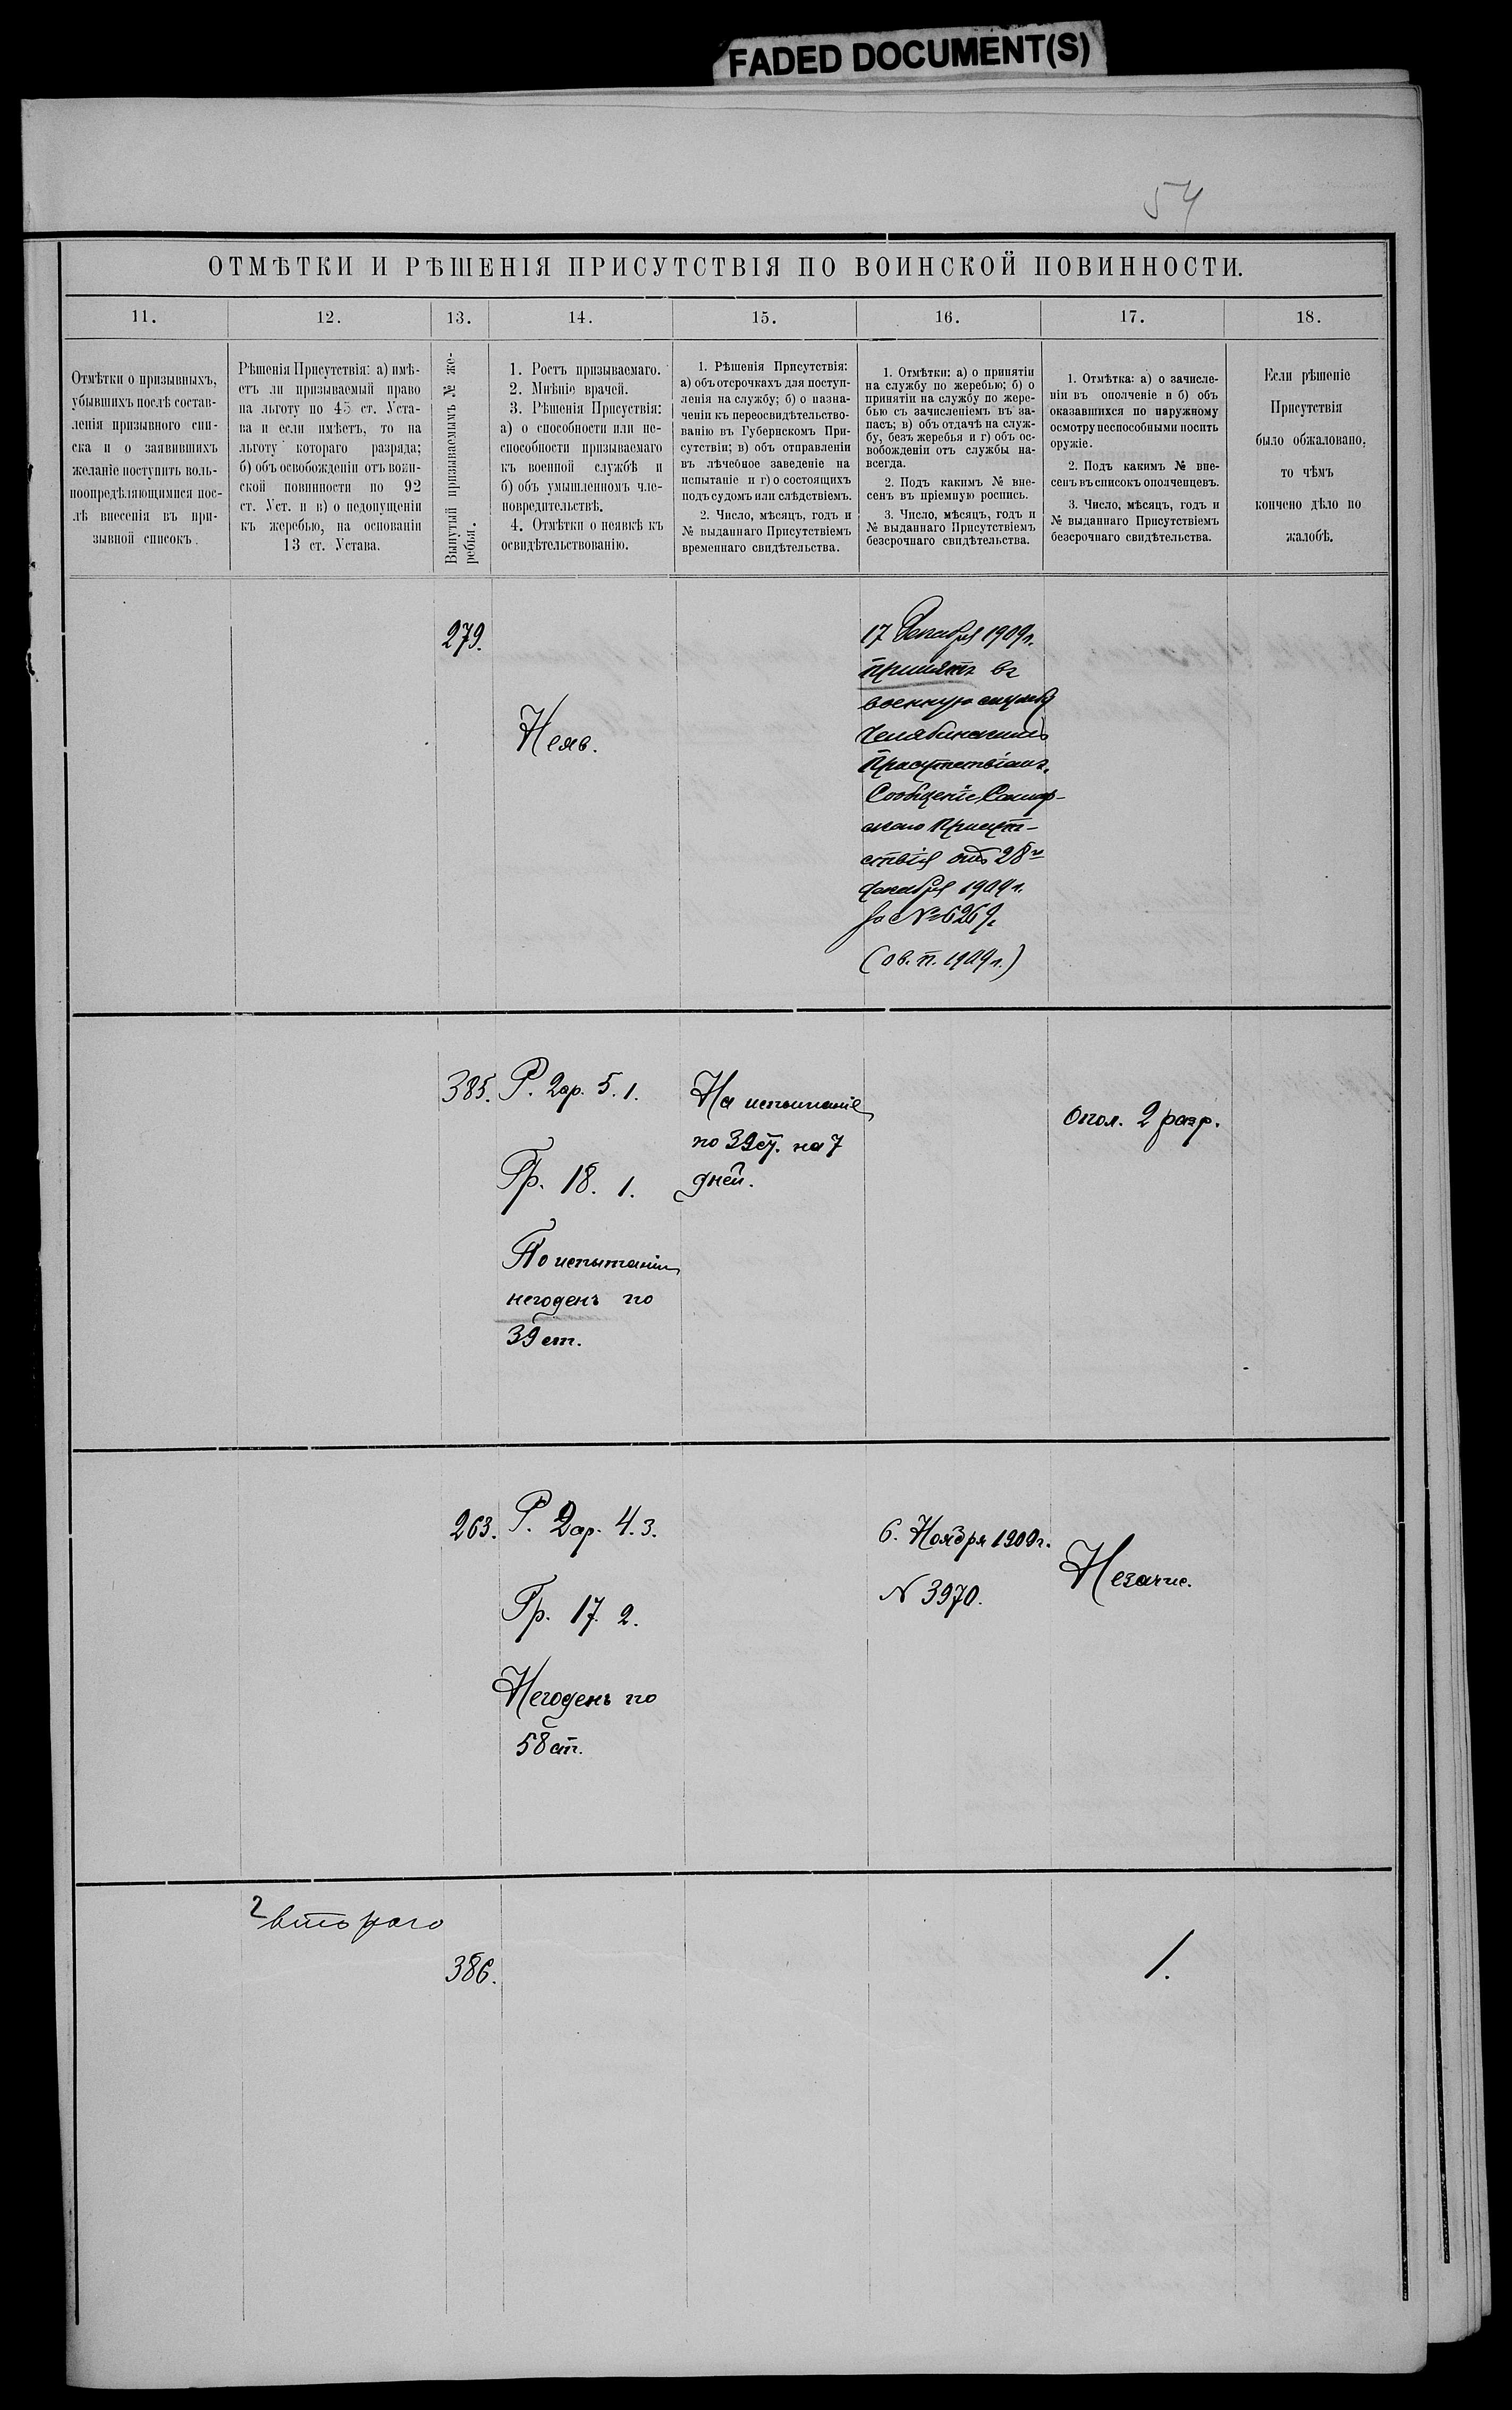 FADED DOCUMENT(S)
54
ОТМѢТКИ И РѢШЕНІЯ ПРИСУТСТВІЯ ПО ВОИНСКОЙ ПОВИННОСТИ.
11.
12.
13.
14.
15.
16.
17.
18.
Отмѣтки о призывныхъ,
убывшихъ послѣ состав-
ленія призывного спи-
ска и о заявившихъ
желаніе поступить воль-
ноопредѣляющимися пос-
лѣ внесенія въ при-
зывной списокъ.
Рѣшенія Присутствія: а) имѣ-
етъ ли призываемый право
на льготу по 45 ст. Уста-
ва и если имѣетъ, то на
льготу котораго разряда;
б) объ освобожденіи отъ воин-
ской повинности по 92
ст. Уст. и в) о недопущеніи
къ жеребью, на основаніи
13 ст. Устава.
Вынутый призываемымъ № же-
ребья.
1. Ростъ призываемаго.
2. Мнѣніе врачей.
3. Рѣшенія Присуствія:
а) о способности или не-
способности призываемаго
къ военной службѣ и
б) объ умышленномъ чле-
новредительствѣ.
4. Отмѣтки о неявкѣ къ
освидѣтельствованію.
1. Рѣшенія Присутствія:
а) объ отсрочкахъ для поступ-
ленія на службу; б) о назна-
ченіи къ переосвидѣтельство-
ванію въ Губернскомъ При-
сутствіи; в) объ отправленіи
въ лѣчебное заведеніе на
испытаніе и г) о состоящихъ
подъ судомъ или слѣдствіемъ.
2. Число, мѣсяцъ, годъ и
№ выданнаго Присутствіемъ
временнаго свидѣтельства.
1. Отмѣтки: а) о принятіи
на службу по жеребью; б) о
принятіи на службу по жере-
бью съ зачисленіемъ въ за-
пасъ; в) объ отдачѣ на служ-
бу, безъ жеребья и г) объ ос-
вобожденіи отъ службы на-
всегда.
2. Подъ какимъ № вне-
сенъ въ пріемную роспись.
3. Число, мѣсяцъ, годъ и
№ выданнаго Присутствіемъ
безсрочнаго свидѣтельства.
1. Отмѣтка: а) о зачисле-
ніи въ ополченіе и б) объ
оказавшихся по наружному
осмотру неспособными носить
оружіе.
2. Подъ какимъ № вне-
сенъ въ списокъ ополченцевъ.
3. Число, мѣсяцъ, годъ и
№ выданнаго Присутствіемъ
безсрочнаго свидѣтельства.
Если рѣшеніе
Присутствія
было обжаловано,
то чѣмъ
кончено дѣло по
жалобѣ.
279.
Неяв.
17 Декабря 1909 г.
принятъ въ
военную службу
Челябинскимъ
Присутствіемъ.
Сообщеніе Самар-
скаго Присут-
ствія отъ 28го
декабря 1909 г.
за № 6269.
(ов. п. 1909 г.)
385.
Р. 2 ар. 5. 1.
Гр. 18. 1.
По испытаніи
негоденъ по
39 ст.
На испытаніе
по 39 ст. на 7
дней.
Опол. 2 разр.
263.
Р. 2 ар. 4. 3.
Гр. 17. 2.
Негоденъ по
58 ст.
6. Ноября 1909 г.
N 3970.
Незачис.
2 второго
386.
1.